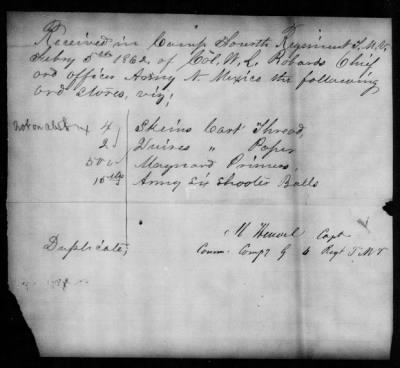 Received in Camp Fourth Regiment T.M.V.
Febry 5th 1862, of Col. W. L. Robards Chief
ord officer Army N. Mexico the following
ord stores, viz;
4 Skeins Cart Thread,
2 Quires " Paper
500 Maynard Primers,
10 lbs Army Six Shooter Balls
M Heuvel Capt
Comm. Compy G 4 Regt T M V
Duplicate,